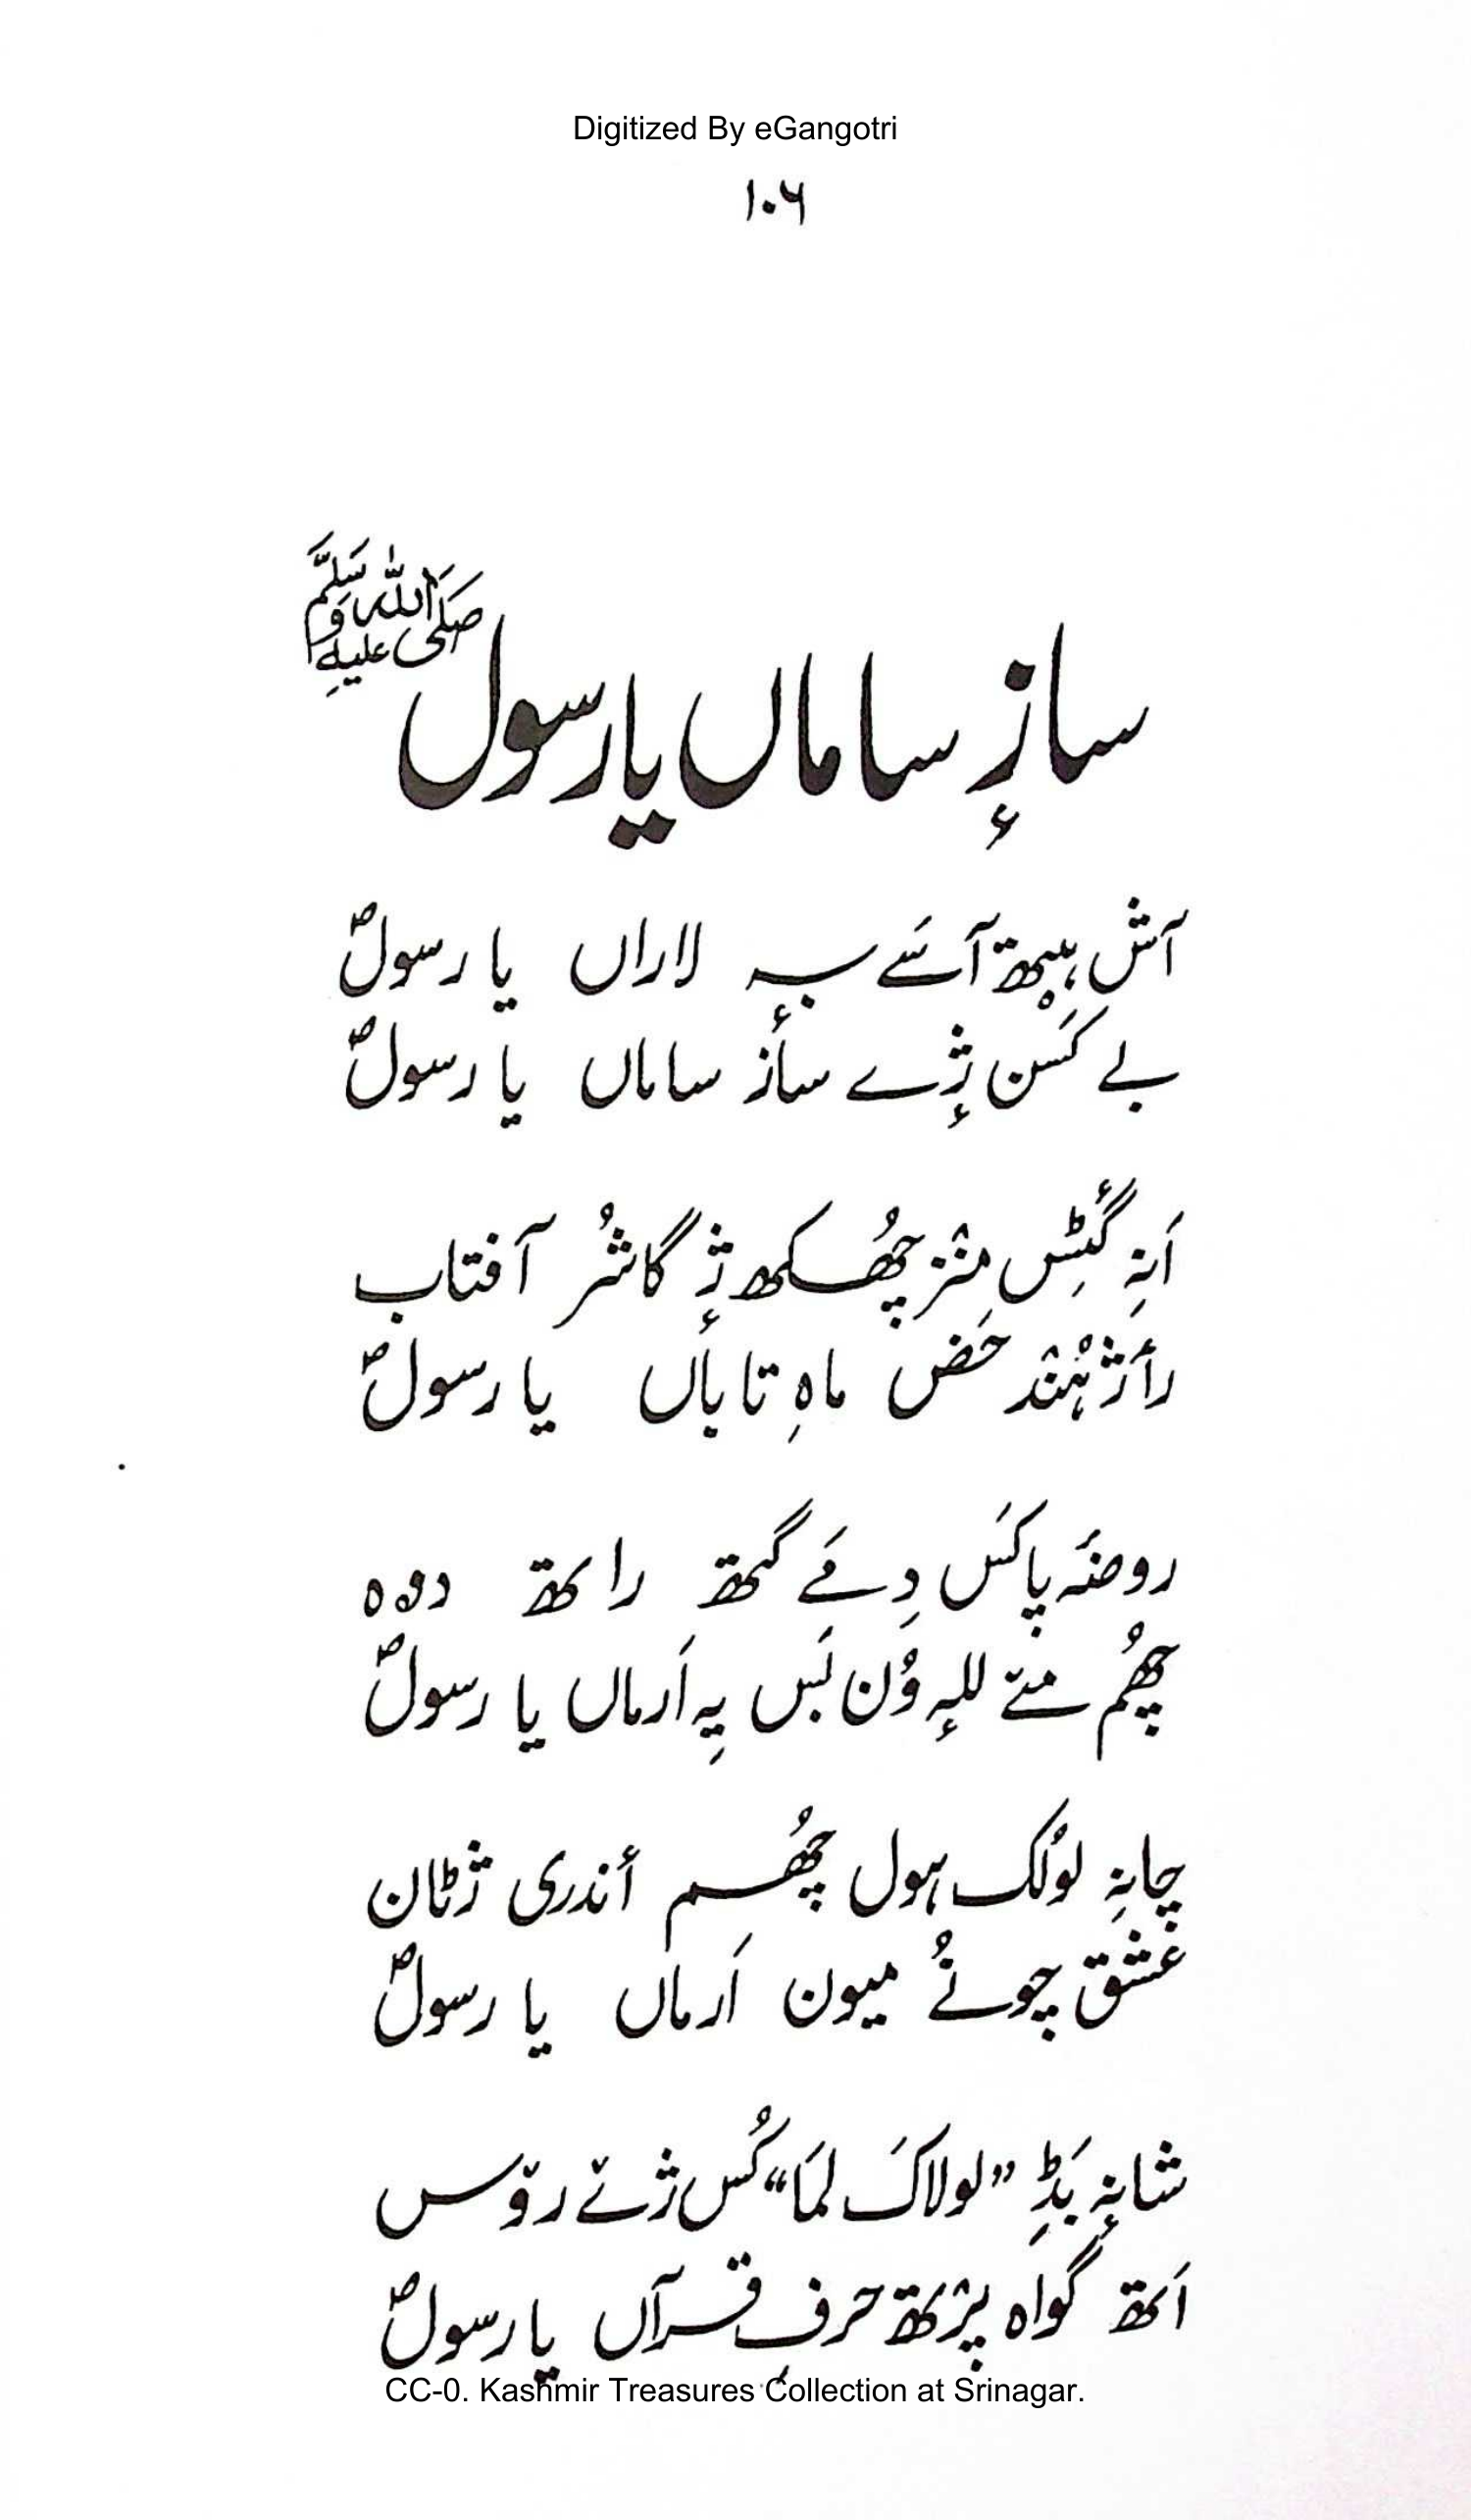 Digitized By eGangotri
۱۰۶
سازٕ ساماں یا رسول صَلَّی اللہ عَلَیہِ وَسَلَّم
آش ہیٚتھ آسَے بہٕ لاراں یا رسولؐ
بے کَسَن ژٕے سٲز ساماں یا رسولؐ
اَنِہ گٔٹِس منٛز چھُکھ ژٕ گاشُر آفتاب
رٲژ ہٕنٛد حَض ماہِ تاباں یا رسولؐ
روضۂ پاکَس دِمَے گتھ راتھ دوہ
چھُم مےٚ للہٕ وُن بَس یِہ اَرماں یا رسولؐ
چانِہ لولُک ہول چھُم أندری ژٹان
عَشق چونُے میون اَرماں یا رسولؐ
شانہٕ بَڈِ ”لولاکَ لمَا“ کُس ژےٚ روٚس
اَتھ گواہ پٔژتھ حرفِ قرآں یا رسولؐ
CC-0. Kashmir Treasures Collection at Srinagar.